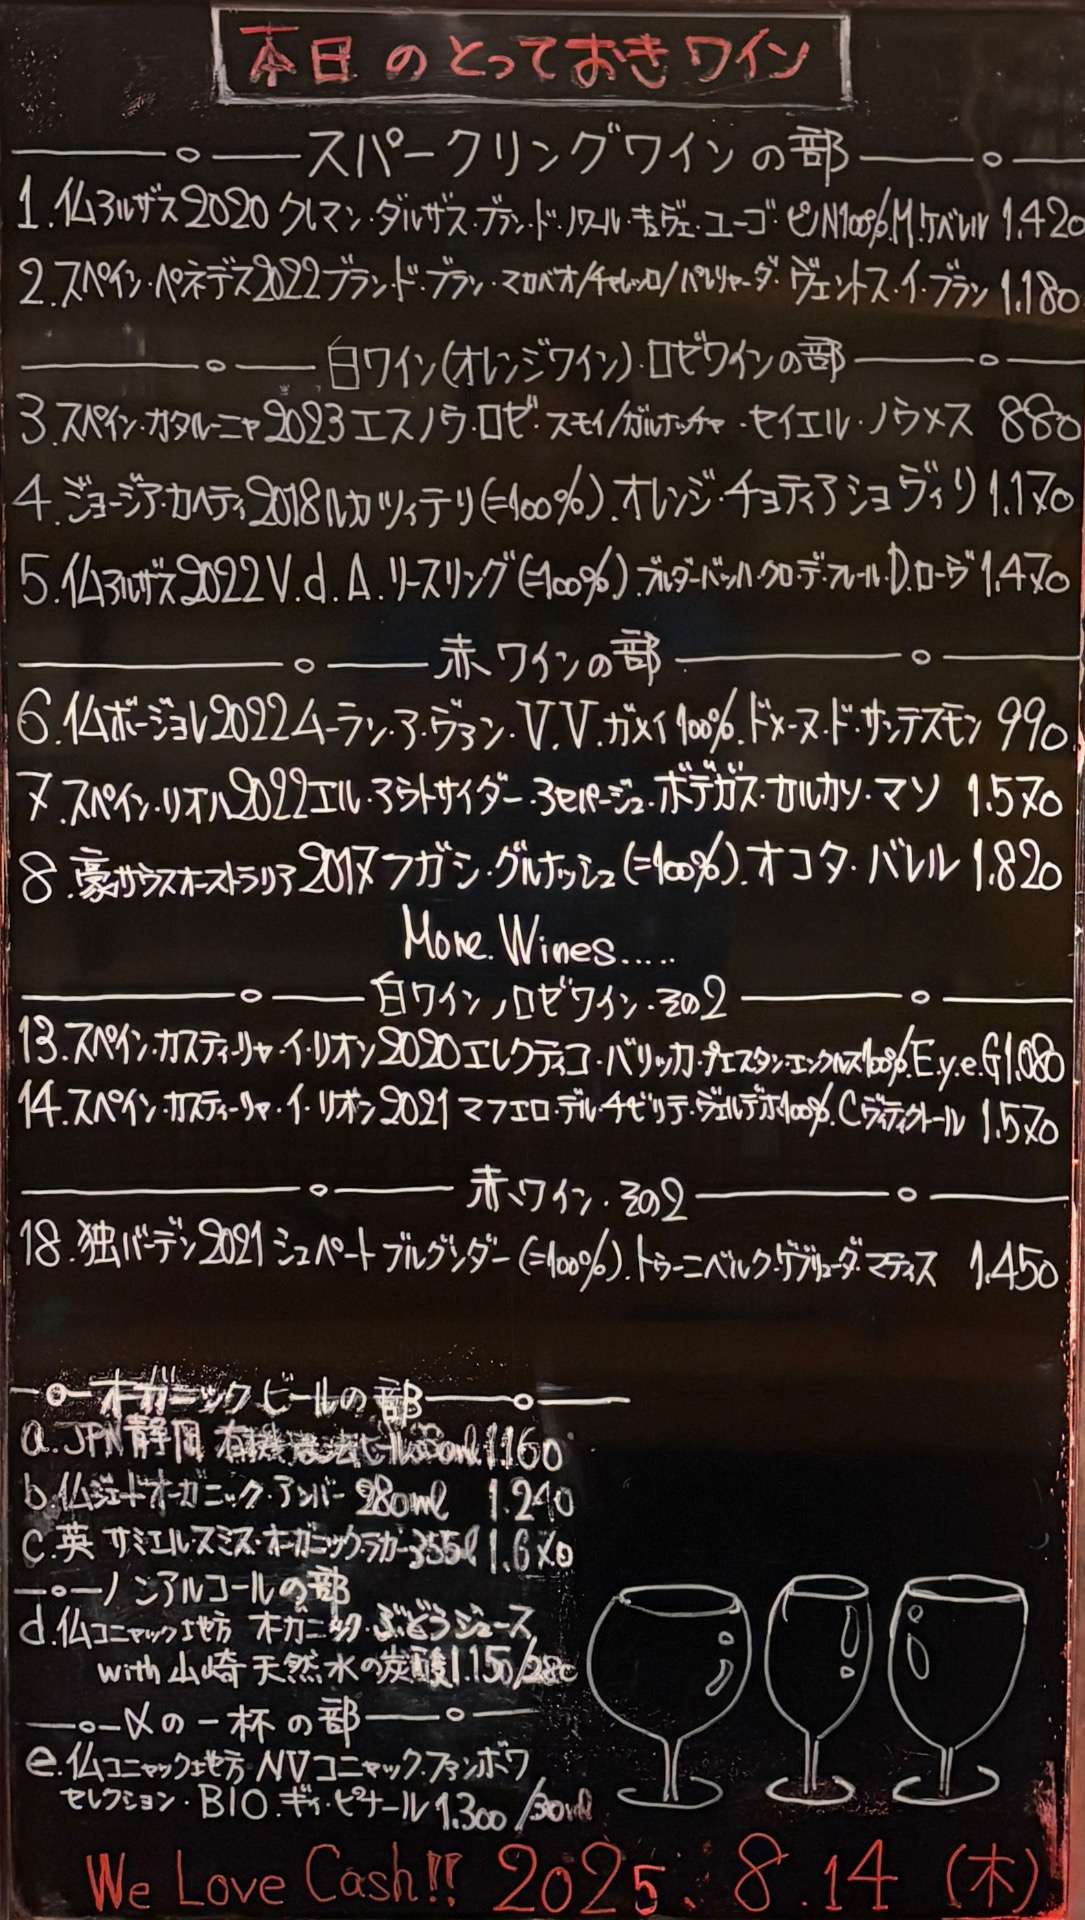 本日のとっておきワイン
スパークリングワインの部
1.仏アルザス2020クレマン・ダルザス・ブラン・ド・ノワール・キュヴェ・ユーゴ・ピノN100%.M.ケベレル 1.420
2.スペイン・ペネデス2022ブラン・ド・ブラン・マカベオ/チャレッロ/パレリャーダ・ヴェントス・イ・ブラン 1.180
白ワイン(オレンジワイン)・ロゼワインの部
3.スペイン・カタルーニャ2023エスノウ・ロゼ・スモイ/ガルナッチャ・セイエル・ノウメス 880
4.ジョージア・カヘティ2018ルカツィテリ(=100%).オレンジ・チョティアショヴィリ 1.170
5.仏アルザス2022V.d.A.リースリング(=100%).ブルダーバッハ・クロ・デ・フレール・D.ローヴ 1.470
赤ワインの部
6.仏ボージョレ2022ムーラン・ア・ヴァン・V.V.ガメイ100%.ドメーヌ・ド・サンテスモン 990
7.スペイン・リオハ2022エル・アウトサイダー・3セパージュ・ボデガス・カルカソ・マソ 1.570
8.豪サウスオーストラリア2017フガシ・グルナッシュ(=100%).オコタ・バレル 1.820
More Wines.....
白ワイン/ロゼワイン・その2
13.スペイン・カスティーリャ・イ・リオン2020エレクティコ・バリッカ・プエスタン・エンクルス100%.E.y.e.G 1.080
14.スペイン・カスティーリャ・イ・リオン2021マフエロ・デル・チビリテ・ヴェルデホ100%.Cヴィティクトール 1.570
赤ワイン・その2
18.独バーデン2021シュペートブルグンダー(=100%).トゥーニベルク・ゲブリューダ・マティス 1.450
オーガニックビールの部
a.JPN静岡 有機農法ビール 1.160
b.仏ジェードオーガニック・アンバー 280ml 1.240
c.英 サミエルスミス・オーガニックラガー355l 1.670
ノンアルコールの部
d.仏コニャック地方 オーガニック・ぶどうジュース
with 山崎天然水の炭酸 1.150/280
〆の一杯の部
e.仏コニャック地方NVコニャックファンボワ
セレクション・BIO.ギィ・ピナール 1.300/30ml
We Love Cash!! 2025.8.14(木)